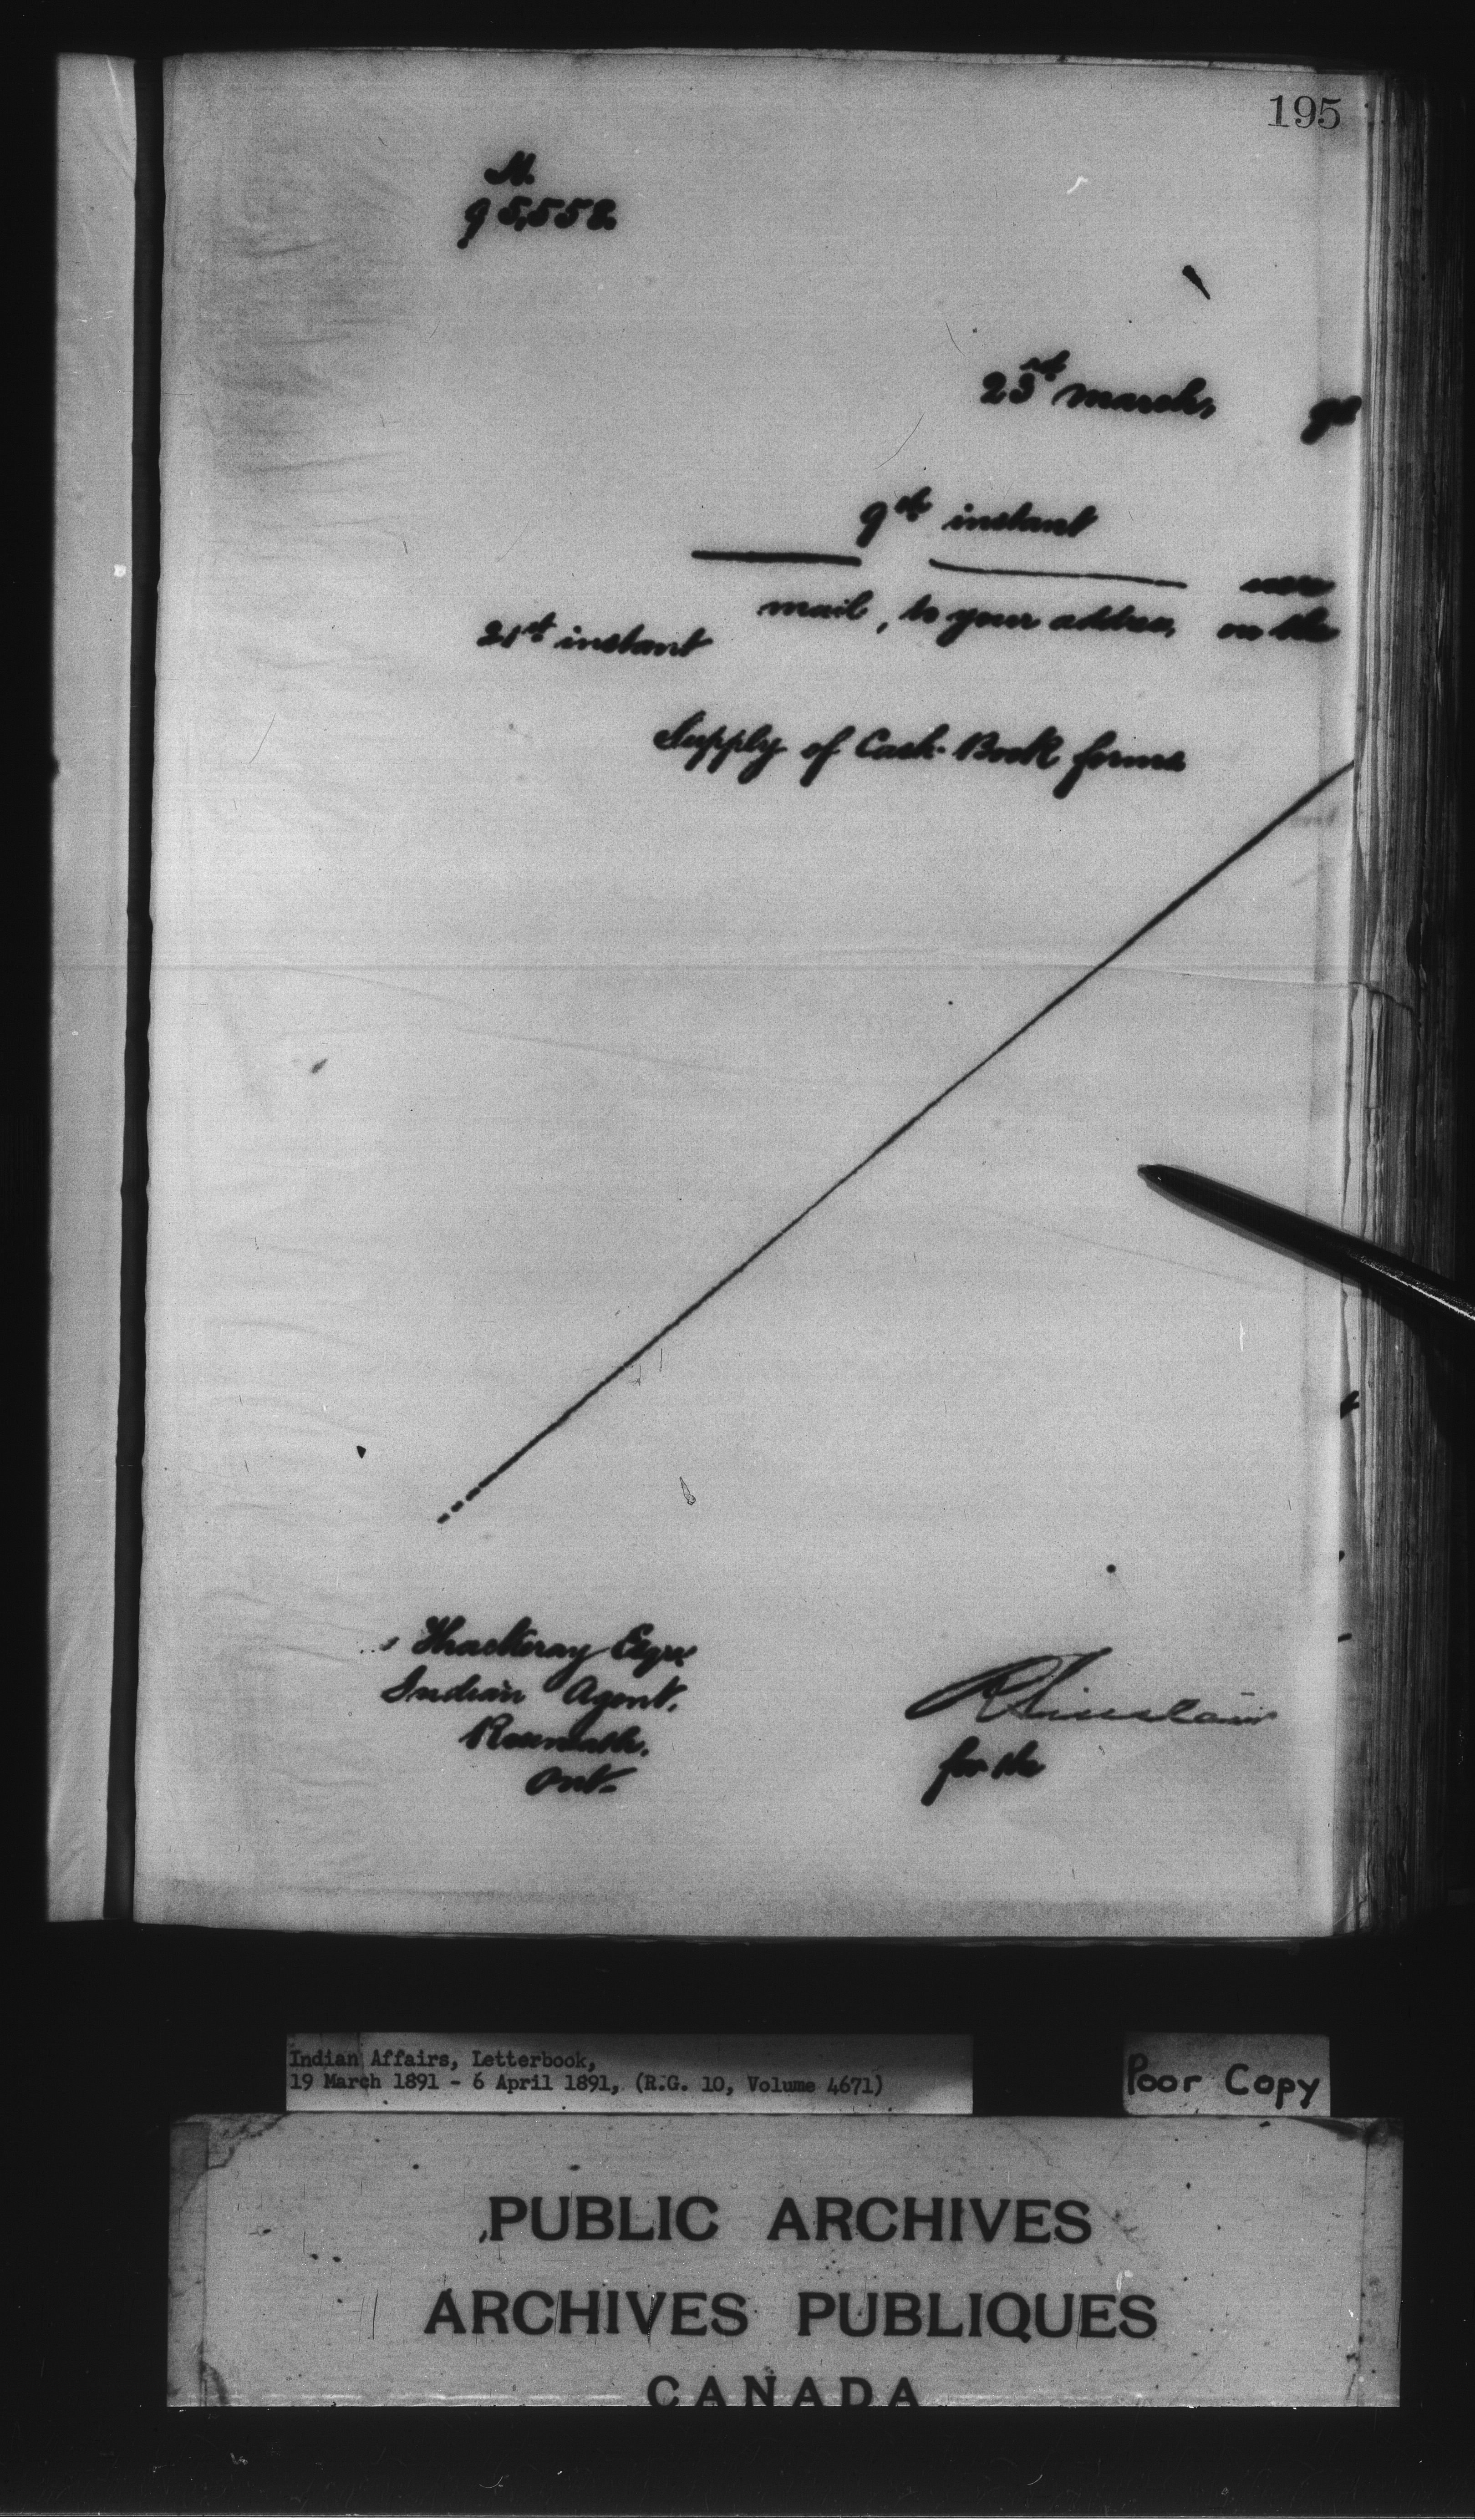 195
M.
95,552
23rd March, 91
9th instant
were
mail, to your address, on the
21st instant
Supply of Cash-Book forms
Thackeray Esqre
Indian Agent.
Roseneath.
Ont-
R Sinclair
for the
Indian Affairs, Letterbook,
19 March 1891 - 6 April 1891, (R.G. 10, Volume 4671)
Poor Copy
PUBLIC ARCHIVES
ARCHIVES PUBLIQUES
CANADA